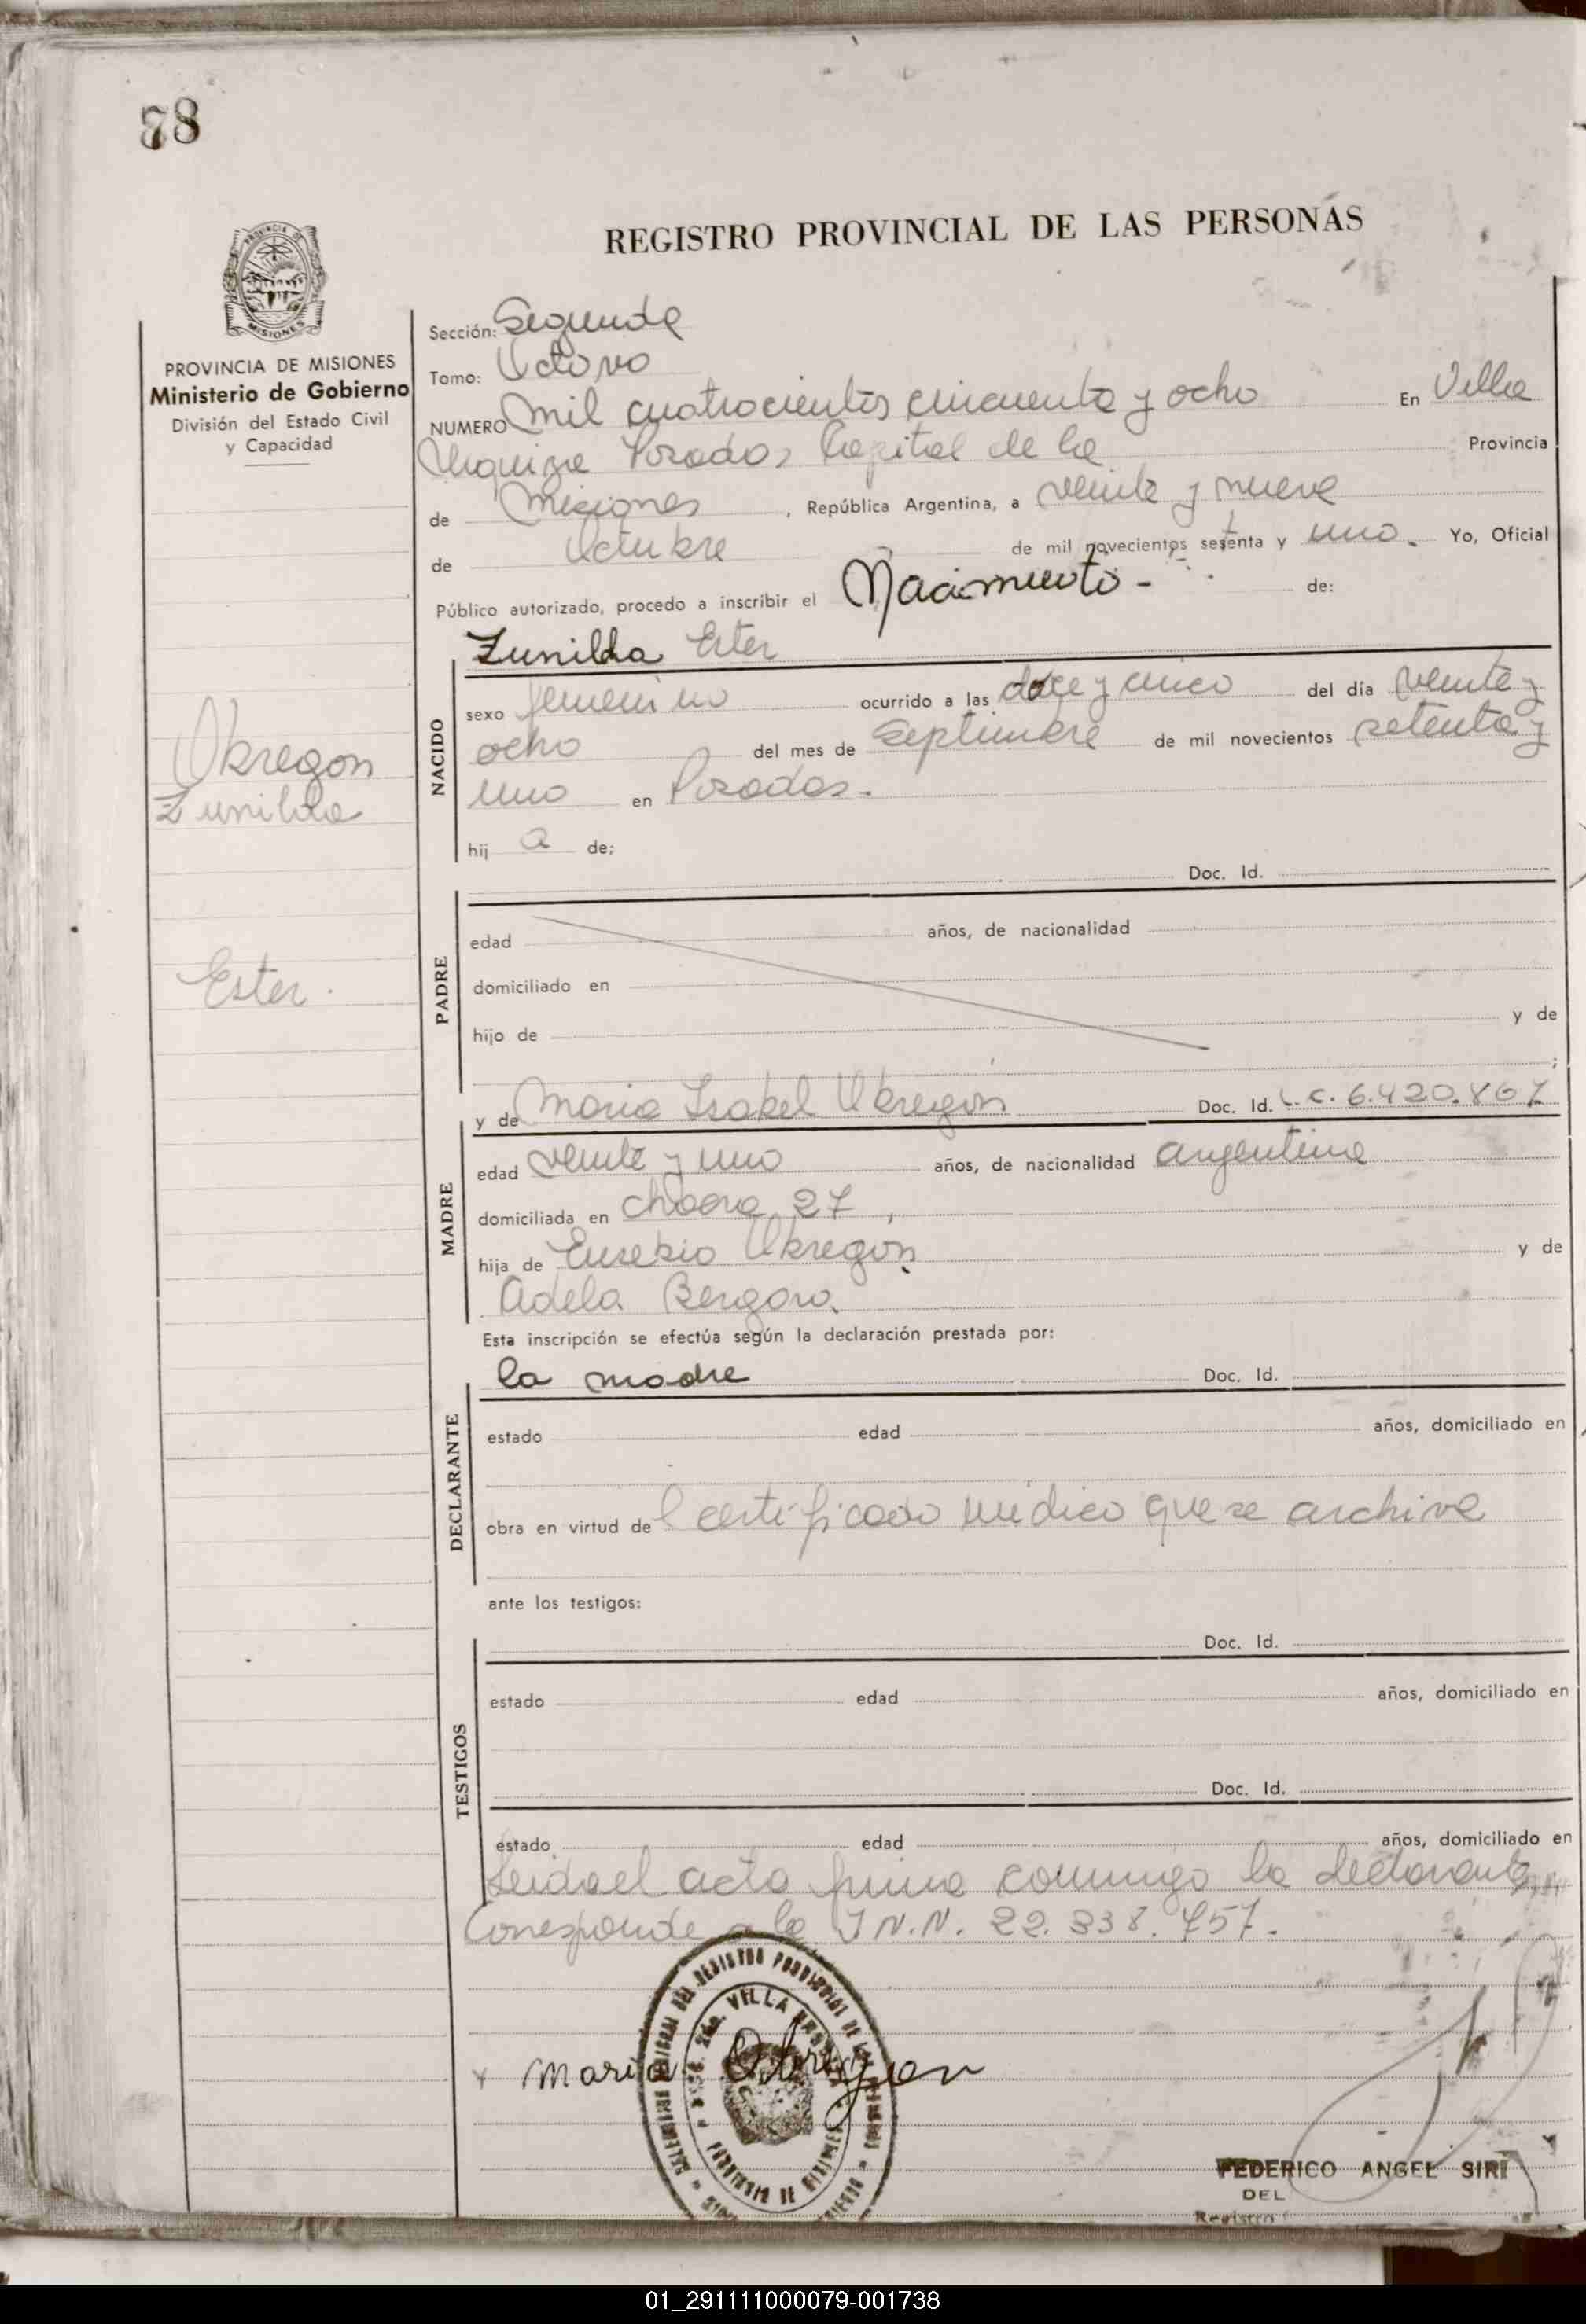 78
REGISTRO PROVINCIAL DE LAS PERSONAS
MISIONES
PROVINCIA DE MISIONES
Ministerio de Gobierno
División del Estado Civil
y Capacidad
Obregon
Zunilda
Ester.
Sección: Segunda
Tomo: Octavo
NUMERO Mil cuatrocientos cincuenta y ocho En Villa
Urquiza Posadas Capital de la Provincia
de Misiones, República Argentina, a veinte y nueve
de Octubre de mil novecientos setenta y uno. Yo, Oficial
Público autorizado, procedo a inscribir el Nacimiento - de:
NACIDO
Zunilda Ester
sexo femenino ocurrido a las doce y cinco del día veinte y
ocho del mes de Septiembre de mil novecientos setenta y
uno en Posadas.
hij a de;
PADRE
Doc. Id.
edad años, de nacionalidad
domiciliado en
hijo de y de
;
MADRE
y de Maria Isabel Obregón Doc. Id. L.C. 6.420.867
edad veinte y uno años, de nacionalidad argentina
domiciliada en chacra 27,
hija de Eusebio Obregón y de
Adela Bergara.
Esta inscripción se efectúa según la declaración prestada por:
DECLARANTE
la madre Doc. Id.
estado edad años, domiciliado en
obra en virtud del certificado médico que se archiva
ante los testigos:
TESTIGOS
Doc. Id.
estado edad años, domiciliado en
Doc. Id.
estado edad años, domiciliado en
Leida el acta firma conmigo la declarante,
Corresponde a la I N.N. 22.338.757.
x Maria Obregon
VILLA
PROVINCIA DE MISIONES
FEDERICO ANGEL SIRI
DEL
Registro
01_291111000079-001738